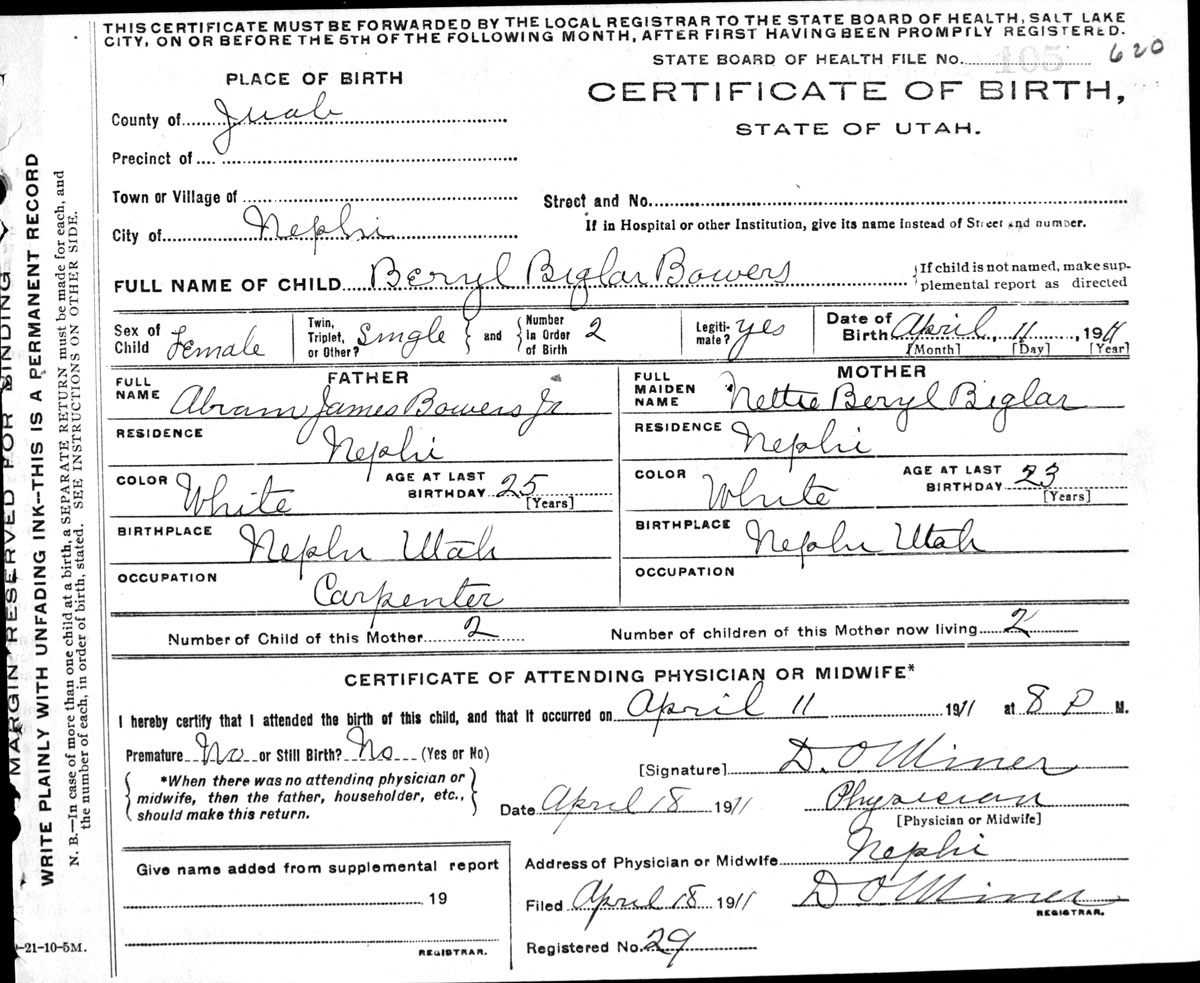 THIS CERTIFICATE MUST BE FORWARDED BY THE LOCAL REGISTRAR TO THE STATE BOARD OF HEALTH, SALT LAKE
CITY, ON OR BEFORE THE 5TH OF THE FOLLOWING MONTH, AFTER FIRST HAVING BEEN PROMPTLY REGISTERED.
STATE BOARD OF HEALTH FILE No. 105 620
PLACE OF BIRTH
CERTIFICATE OF BIRTH,
STATE OF UTAH.
County of Juab
Precinct of
Town or Village of
Street and No.
City of Nephi
If in Hospital or other Institution, give its name instead of Street and number.
FULL NAME OF CHILD Beryl Biglar Bowers
If child is not named, make sup-
plemental report as directed
Sex of Child Female
Twin, Triplet, or Other? Single and Number in Order of Birth 2
Legiti-mate? yes
Date of Birth April 11, 1911
[Month] [Day] [Year]
FATHER
FULL NAME Abram James Bowers Jr
RESIDENCE Nephi
COLOR White AGE AT LAST BIRTHDAY 25
[Years]
BIRTHPLACE Nephi Utah
OCCUPATION Carpenter
MOTHER
FULL MAIDEN NAME Nettie Beryl Biglar
RESIDENCE Nephi
COLOR White AGE AT LAST BIRTHDAY 23
[Years]
BIRTHPLACE Nephi Utah
OCCUPATION
Number of Child of this Mother 2 Number of children of this Mother now living 2
CERTIFICATE OF ATTENDING PHYSICIAN OR MIDWIFE*
I hereby certify that I attended the birth of this child, and that it occurred on April 11 1911 at 8 P M.
Premature No or Still Birth? No (Yes or No)
*When there was no attending physician or
midwife, then the father, householder, etc.,
should make this return.
[Signature] D. O Miner
Date April 18 1911 Physician
[Physician or Midwife]
Give name added from supplemental report
19
REGISTRAR.
Address of Physician or Midwife Nephi
Filed April 18 1911 D O Miner
REGISTRAR.
Registered No. 29
MARGIN RESERVED FOR BINDING
WRITE PLAINLY WITH UNFADING INK--THIS IS A PERMANENT RECORD
N. B.—In case of more than one child at a birth, a SEPARATE RETURN must be made for each, and
the number of each, in order of birth, stated. SEE INSTRUCTIONS ON OTHER SIDE.
-21-10-5M.